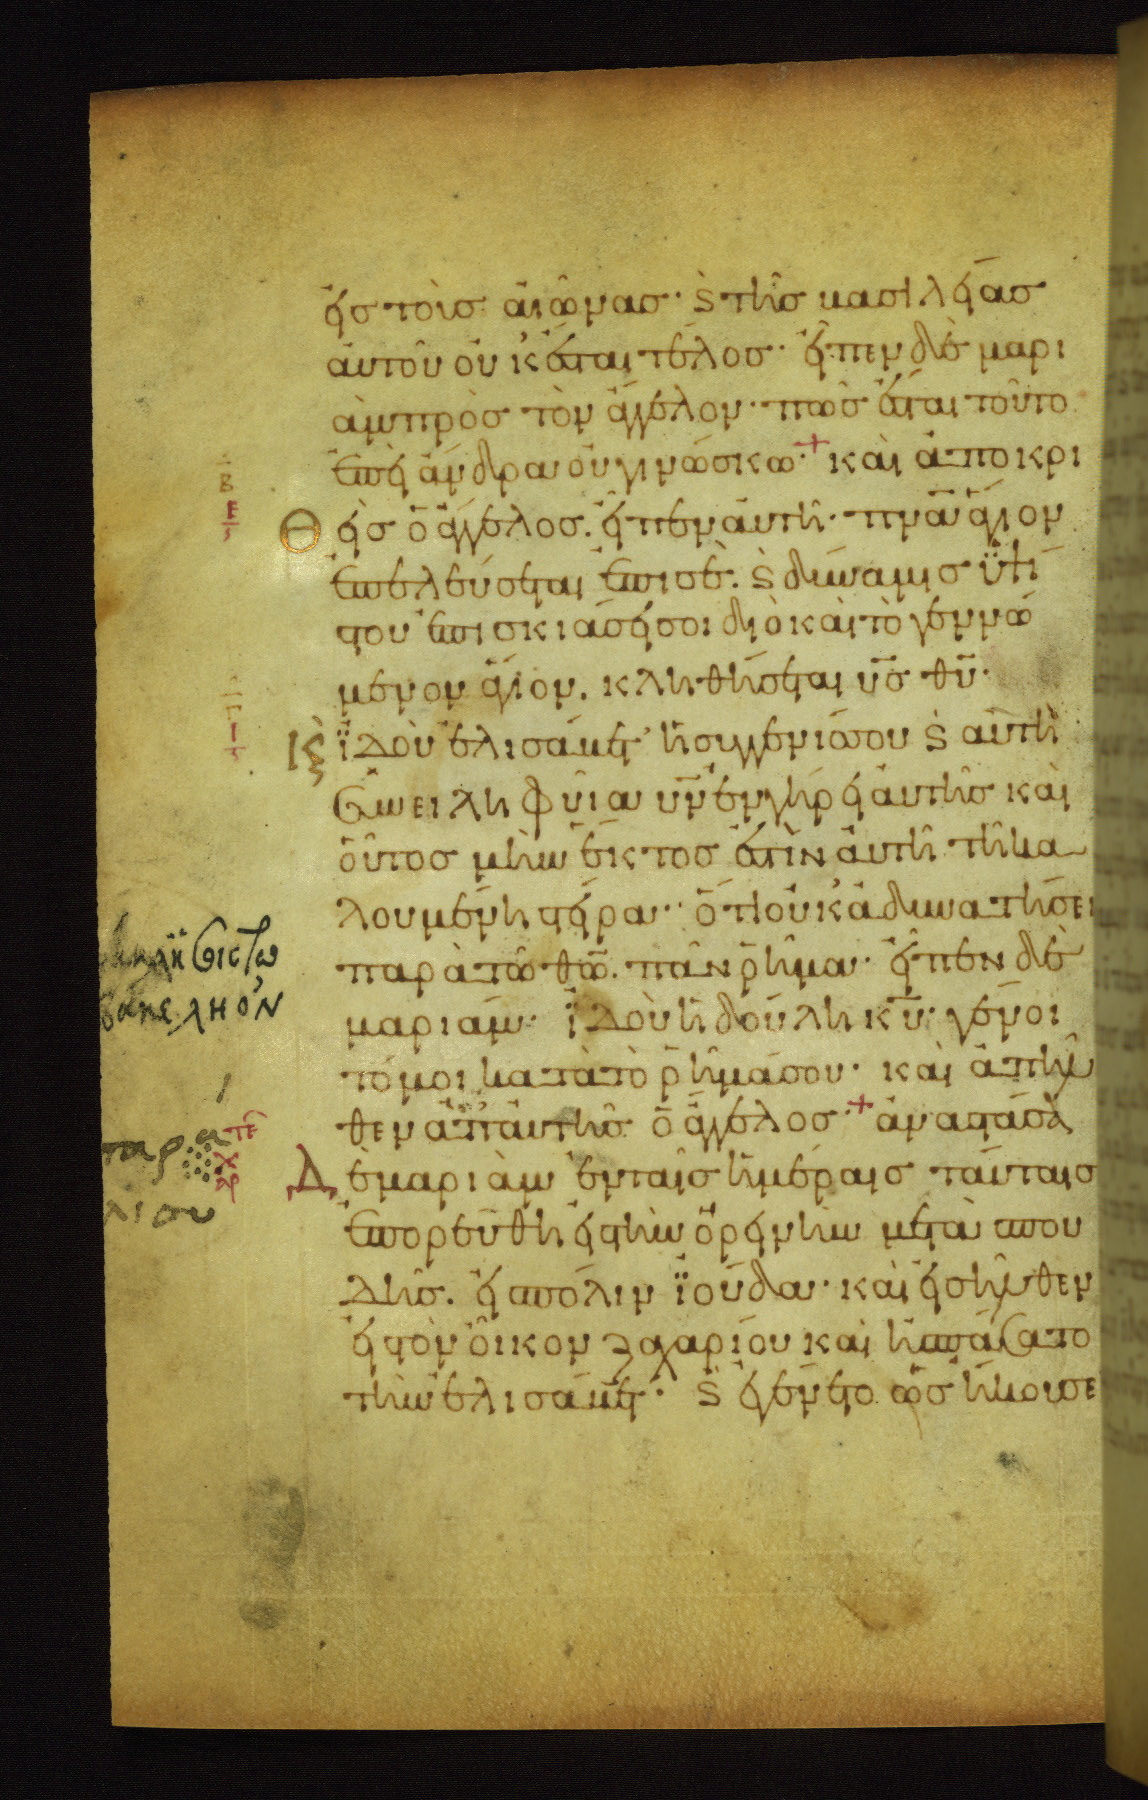 εἰς τοὺς αἰῶνας· ϗ τῆς βασιλείας
αὐτοῦ οὐκ ἔσται τέλος· εἶπεν δὲ μαρι
ὰμ πρὸς τὸν ἄγγελον· πῶς ἔσται τοῦτο
ἐπεὶ ἄνδρα οὐ γινώσκω· + καὶ ἀποκρι
Θεὶς ὁ ἄγγελος. εἶπεν αὐτῆ· πνᾶ ἅγιον
ἐπελεύσεται ἐπὶ σὲ. ϗ δύναμις ὑψί
στου ἐπισκιάσει σοι διὸ καὶ τὸ γεννώ
μενον ἅγιον. κληθήσεται υς θυ·
ϊδοὺ ἐλισάβετ ἡ συγγενίς σου ϗ αὐτὴ
συνειληφυῖα υν ἐν γήρει αὐτῆς καὶ
οὗτος μὴν ἕκτος ἐστὶν αὐτῆ τῆ κα
λουμένη στείρα· ὅτι οὐκ ἀδυνατήσει
παρὰ τῶ θω. πᾶν ῥῆμα· εἶπεν δὲ
μαριάμ· ϊδοὺ ἡ δούλη κυ· γένοι
τό μοι κατὰ τὸ ῥῆμά σου· καὶ ἀπῆλ
θεν ἀπ' αὐτῆς ὁ ἄγγελος· + ἀναστᾶσα
Δὲ μαριὰμ ἐν ταῖς ἡμέραις ταύταις
ἐπορεύθη εἰς τὴν ὀρεινὴν μετὰ σπου
δῆς. εἰς πόλιν ϊούδα· καὶ εἰσῆλθεν
εἰς τὸν οἶκον ζαχαρίου καὶ ἠσπάσατο
τὴν ἐλισάβετ· ϗ ἐγένετο ὡς ἤκουσε